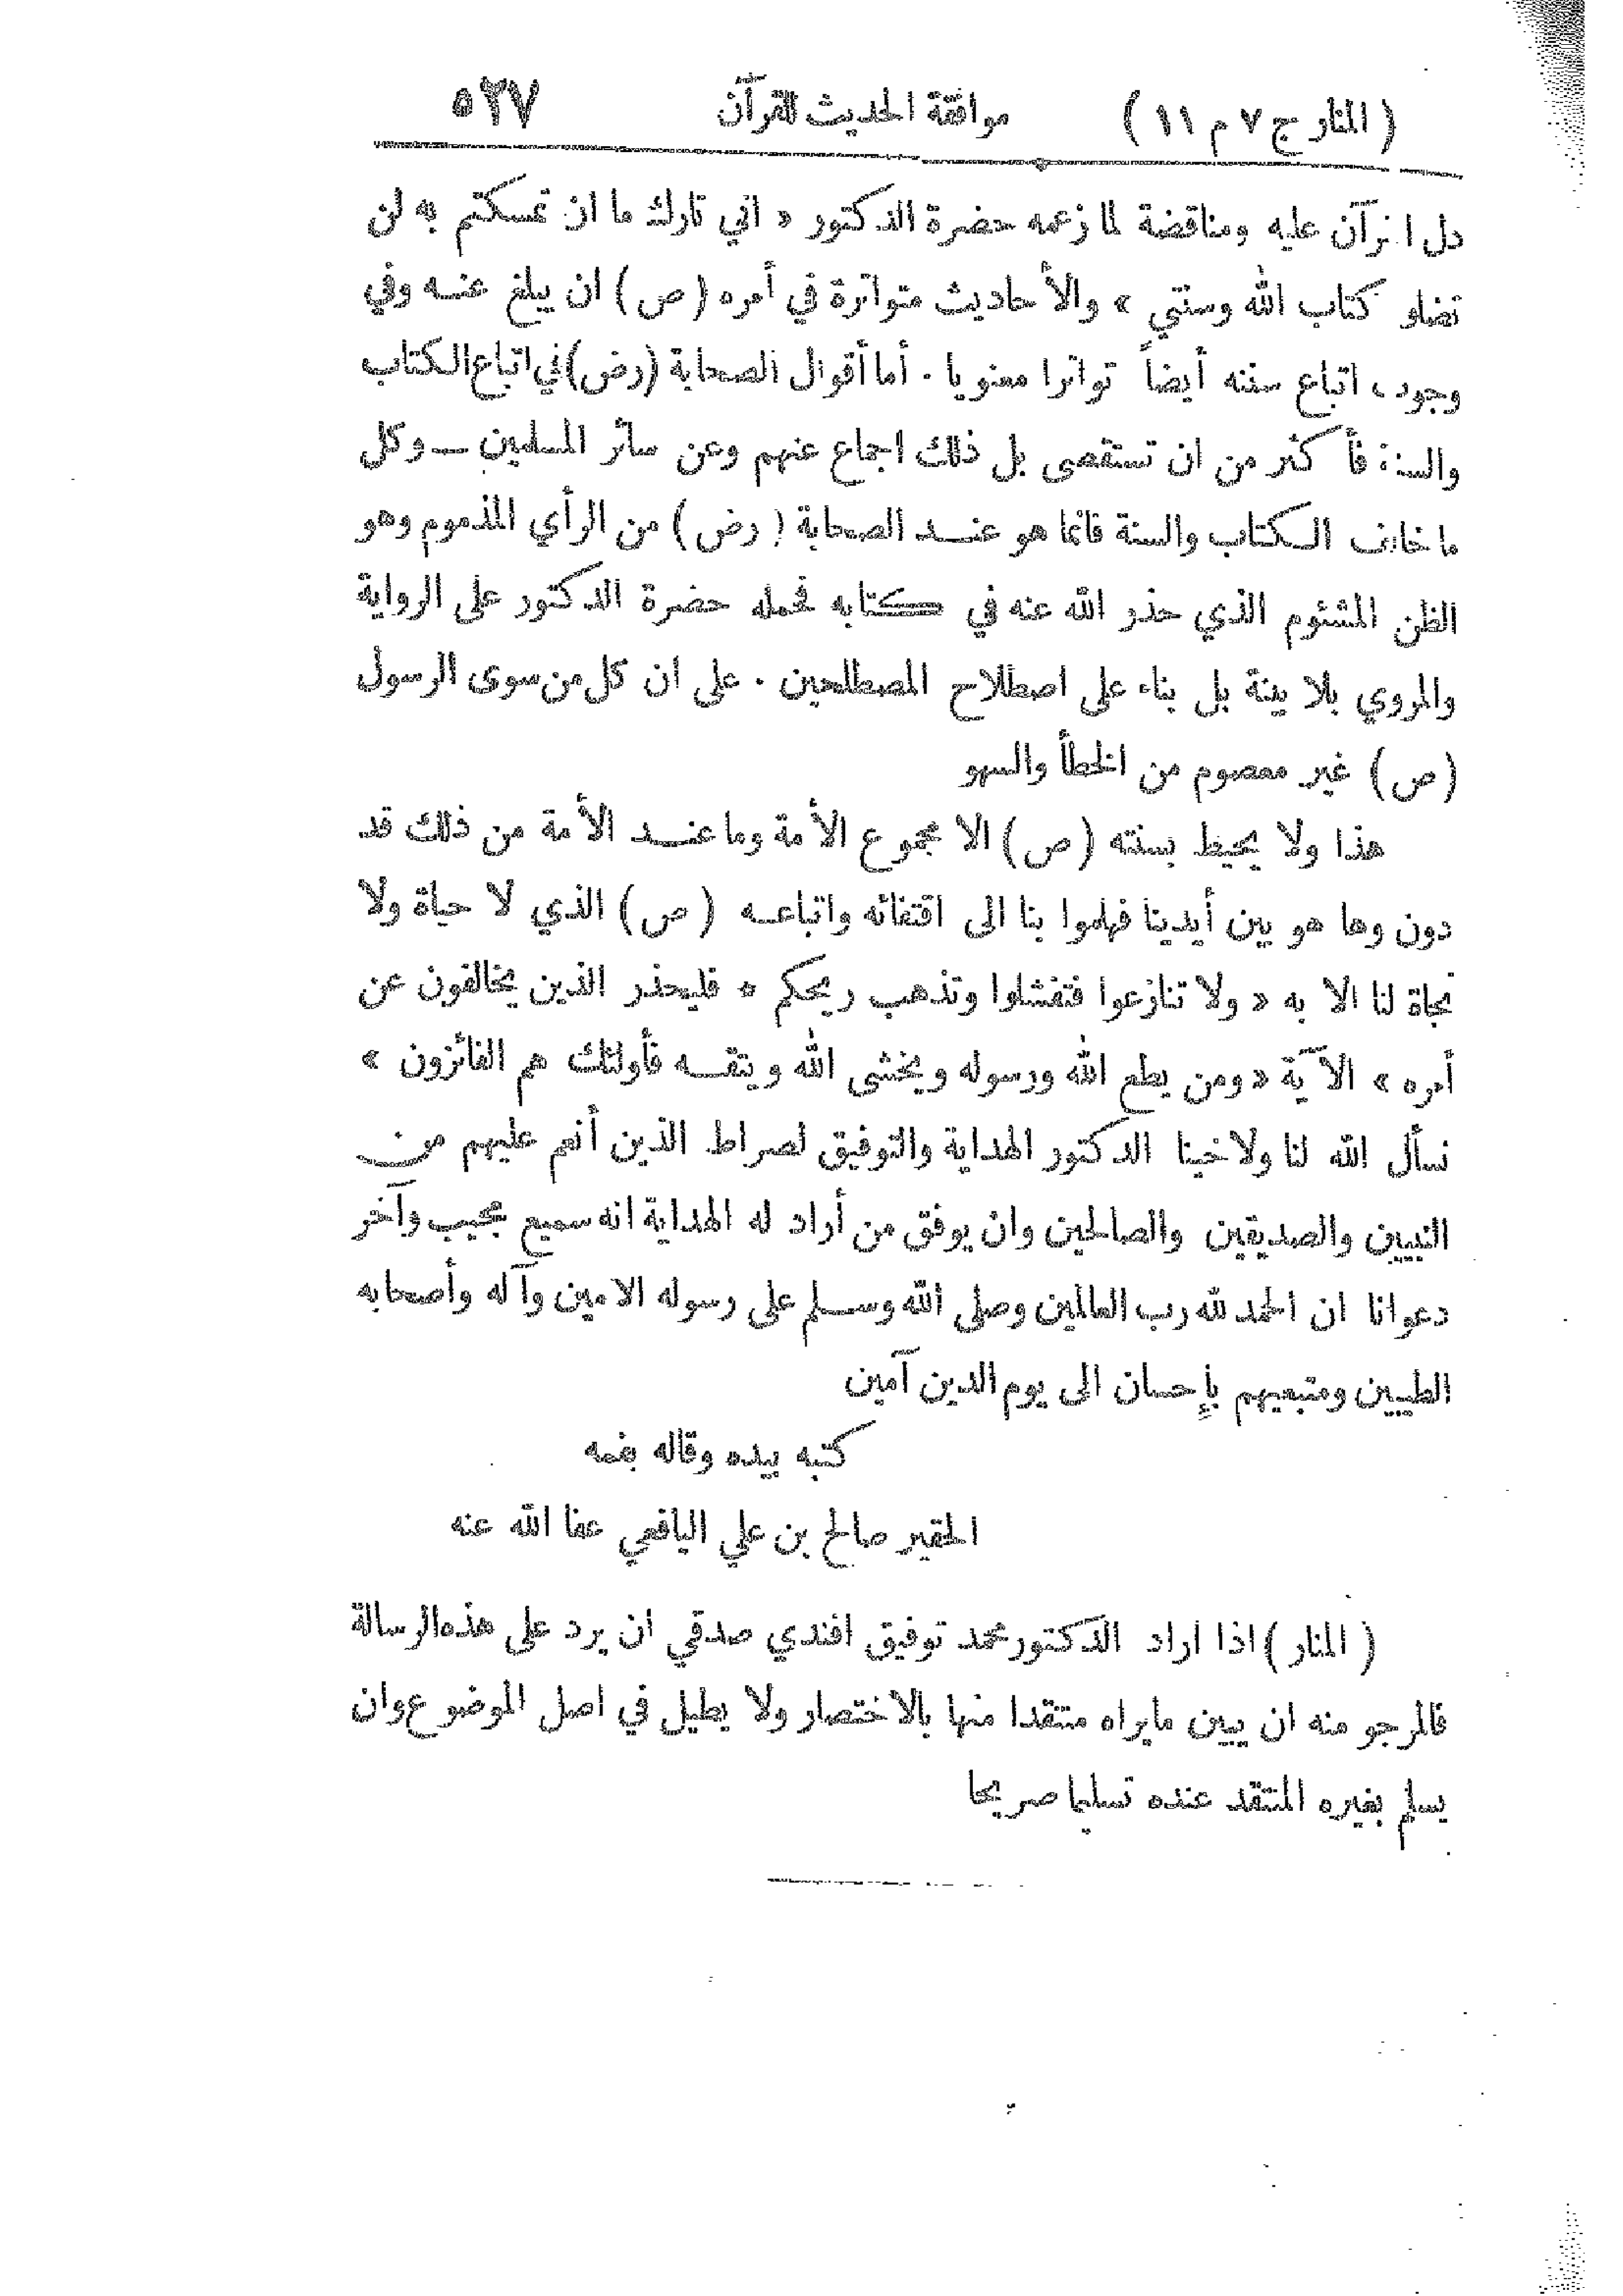 ( المنار ج ٧ م ١١ ) موافقة الحديث للقرآن ٥٢٧
دل القرآن عليه ومناقضة لما زعمه حضرة الدكتور « اني تارك ما ان تمسكتم به لن
تضلو كتاب الله وسنتي » والأحاديث متواترة في أمره ( ص ) ان يبلغ عنه وفي
وجوب اتباع سننه أيضاً تواترا معنويا . أما أقوال الصحابة (رض) في اتباع الكتاب
والسنة فأكثر من ان تستقصى بل ذلك اجماع عنهم وعن سائر المسلمين — وكل
ما خالف الكتاب والسنة فانما هو عند الصحابة ( رض ) من الرأي المذموم وهو
الظن المشئوم الذي حذر الله عنه في كتابه فحمله حضرة الدكتور على الرواية
والمروي بلا بينة بل بناء على اصطلاح المصطلحين . على ان كل من سوى الرسول
( ص ) غير معصوم من الخطأ والسهو
هذا ولا يحيط بسنته ( ص ) الا مجموع الأمة وما عند الأمة من ذلك قد
دون وها هو بين أيدينا فهلموا بنا الى اقتفائه واتباعه ( ص ) الذي لا حياة ولا
نجاة لنا الا به « ولا تنازعوا فتفشلوا وتذهب ريحكم * فليحذر الذين يخالفون عن
أمره » الآية « ومن يطع الله ورسوله ويخشى الله ويتقه فأولئك هم الفائزون »
نسأل الله لنا ولاخينا الدكتور الهداية والتوفيق لصراط الذين أنعم عليهم من
النبيين والصديقين والصالحين وان يوفق من أراد له الهداية انه سميع مجيب وآخر
دعوانا ان الحمد لله رب العالمين وصلى الله وسلم على رسوله الامين وآله وأصحابه
الطيبين ومتبعيهم بإحسان الى يوم الدين آمين
كتبه بيده وقاله بفمه
الحقير صالح بن علي اليافعي عفا الله عنه
( المنار ) اذا اراد الدكتور محمد توفيق افندي صدقي ان يرد على هذه الرسالة
فالمرجو منه ان يبين مايراه منتقدا منها بالاختصار ولا يطيل في اصل الموضوع وان
يسلم بغيره المنتقد عنده تسليما صريحا